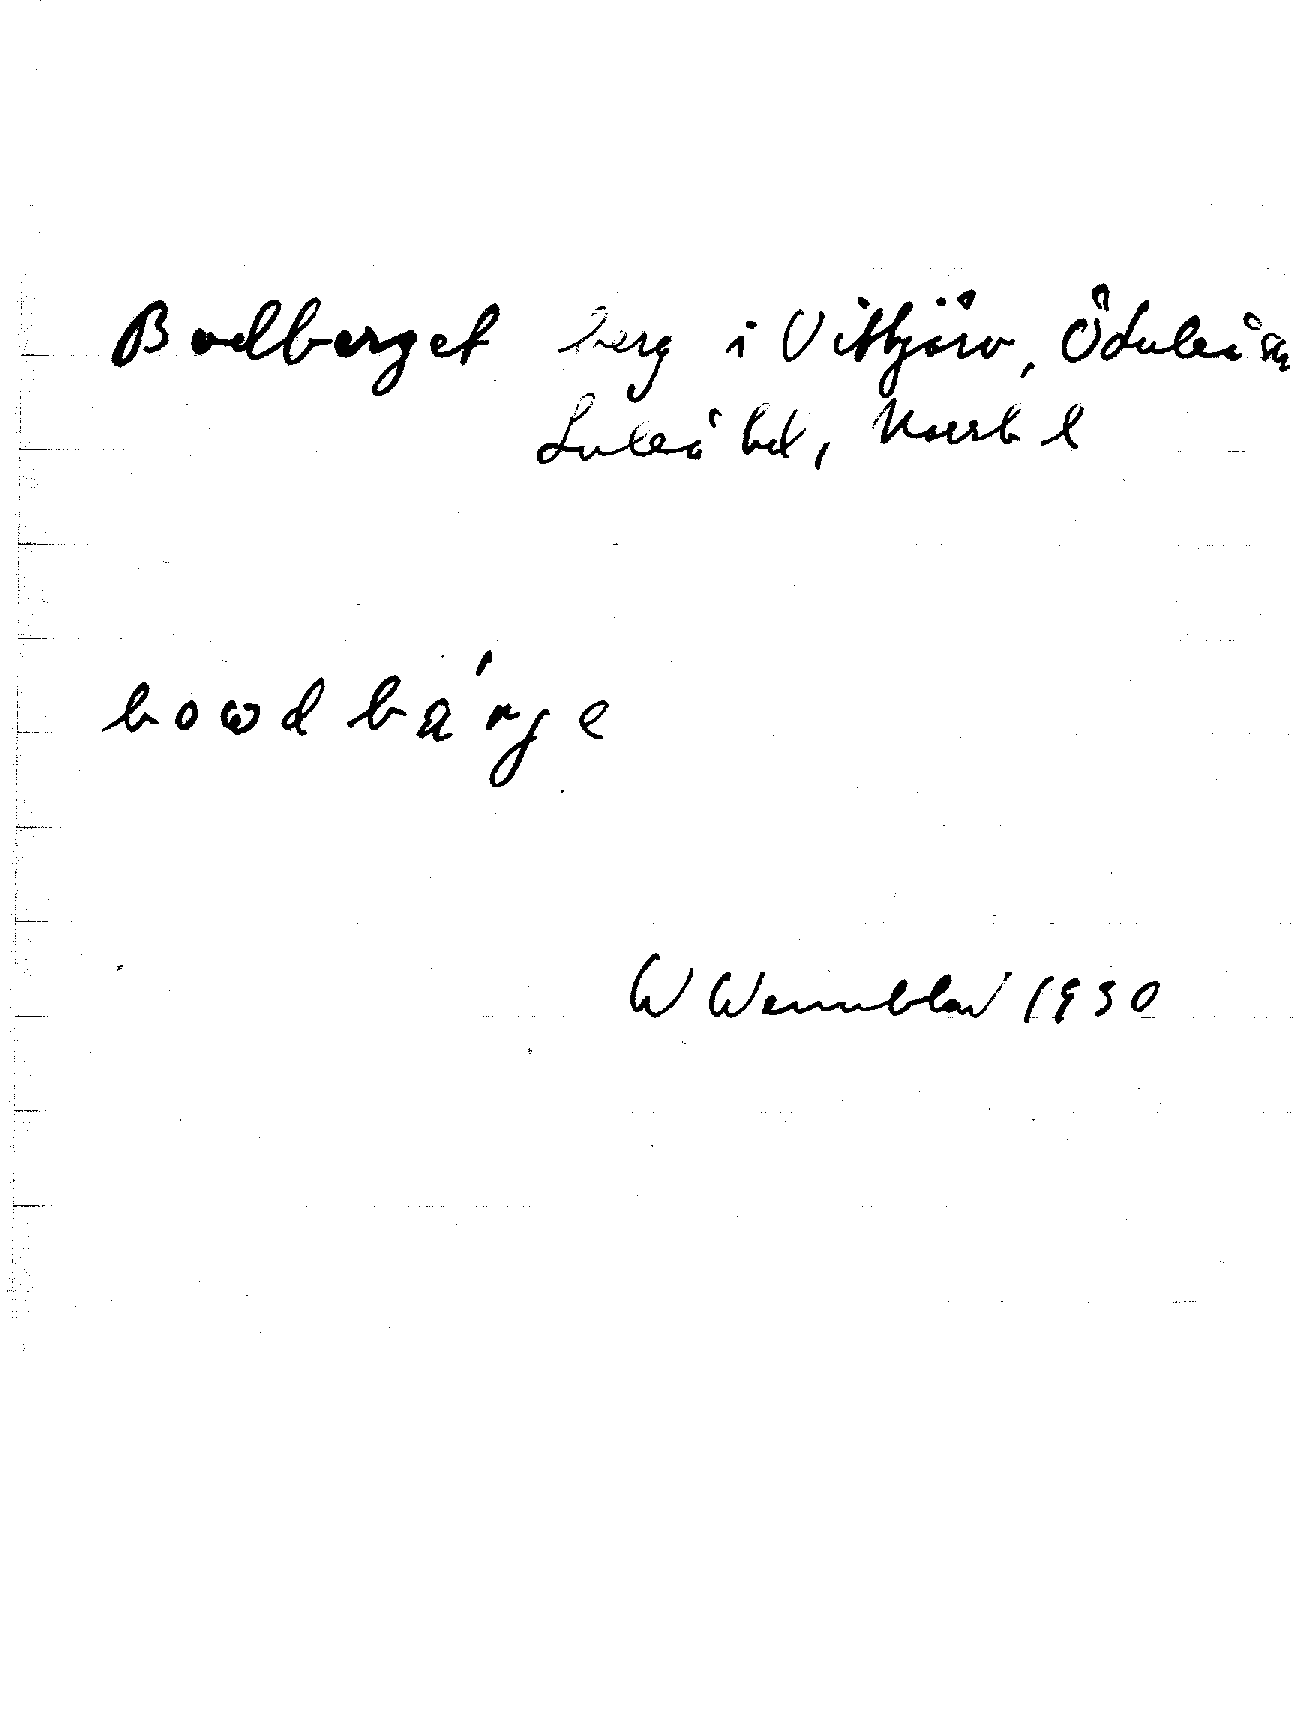 Bodberget berg i Vittjärv, ÖLuleå sn
Luleå hd, Norrb l
boωdbα'rje
W Wennblad 1930